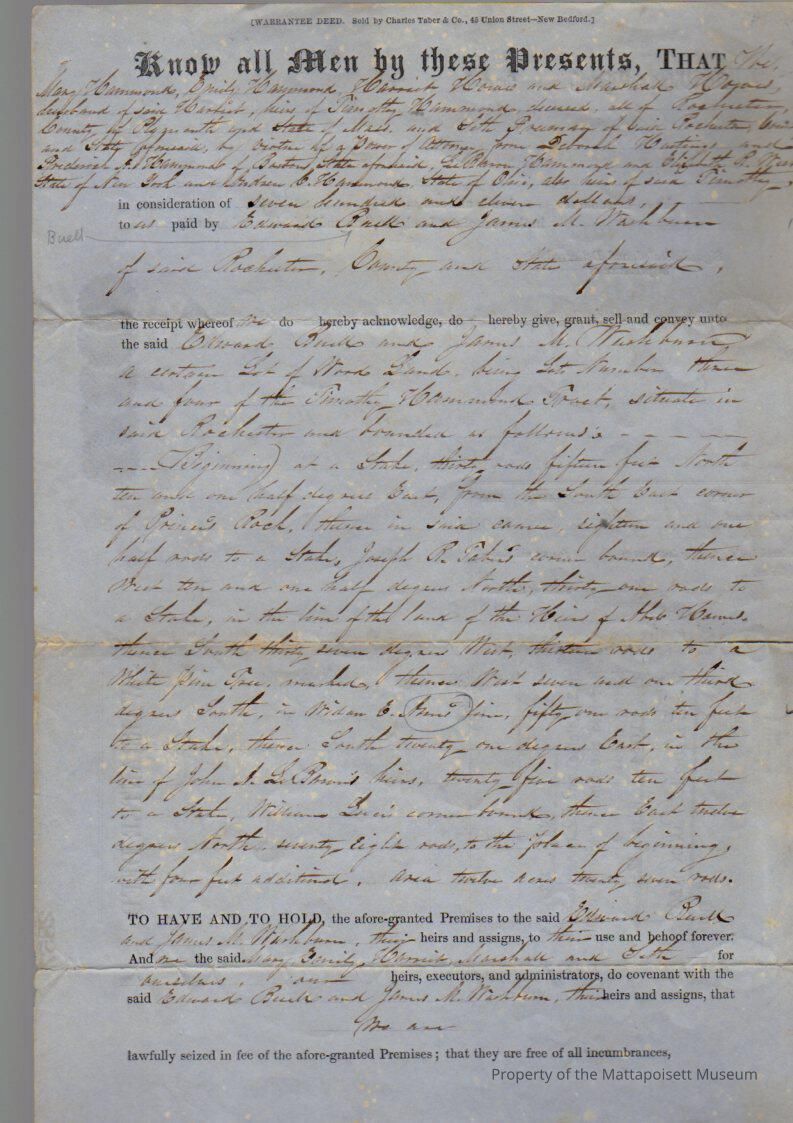 [WARRANTEE DEED. Sold by Charles Taber & Co., 45 Union Street—New Bedford.]
Know all Men by these Presents, THAT We,
Mary Hammond, Emily Hammond, Harriet Howes and Marshall Howes,
husband of said Harriet, heirs of Timothy Hammond, deceased, all of Rochester,
County of Plymouth and State of Mass. and Seth of said Rochester,
and State aforesaid, by virtue of a Power of Attorney from Deborah Hastings and
Frederick Hammond of Boston, State aforesaid, LeBaron Hammond and Elizabeth
State of New York and Andrew Hammond, State of Ohio, also heirs of said Timothy,
in consideration of seven hundred and eleven dollars,
to us paid by Edward Buell and James M. Washburn
Buell
of said Rochester, County and State aforesaid,
the receipt whereof we do hereby acknowledge, do hereby give, grant, sell and convey unto
the said Edward Buell and James M. Washburn,
a certain Lot of Wood Land, being Lot Number three
and four of the Timothy Hammond Tract, situate in
said Rochester and bounded as follows:
(Beginning) at a Stake, thirty rods fifteen feet North
ten and one half degrees East, from the South East corner
of Prince's Rock, thence in said course, eighteen and one
half rods to a Stake, Joseph R. Taber's corner bound, thence
West ten and one half degrees North, thirty one rods to
a Stake, in the line of the land of the Heirs of
thence South thirty seven degrees West, thirteen rods to a
White pine Tree, marked, thence West seven and one third
degrees South, in line, fifty one rods ten feet
to a Stake, thence South twenty one degrees East, in the
line of John A. LeBaron's heirs, twenty five rods ten feet
to a Stake, William corner bound, thence East twelve
degrees North, seventy Eight rods, to the place of beginning,
with four feet additional. area twelve acres twenty seven rods.
TO HAVE AND TO HOLD, the afore-granted Premises to the said Edward Buell
and James M. Washburn, their heirs and assigns, to their use and behoof forever.
And we the said Mary, Emily, Harriet, Marshall and Seth for
ourselves, our heirs, executors, and administrators, do covenant with the
said Edward Buell and James M. Washburn, their heirs and assigns, that
We are
lawfully seized in fee of the afore-granted Premises; that they are free of all incumbrances,
Property of the Mattapoisett Museum